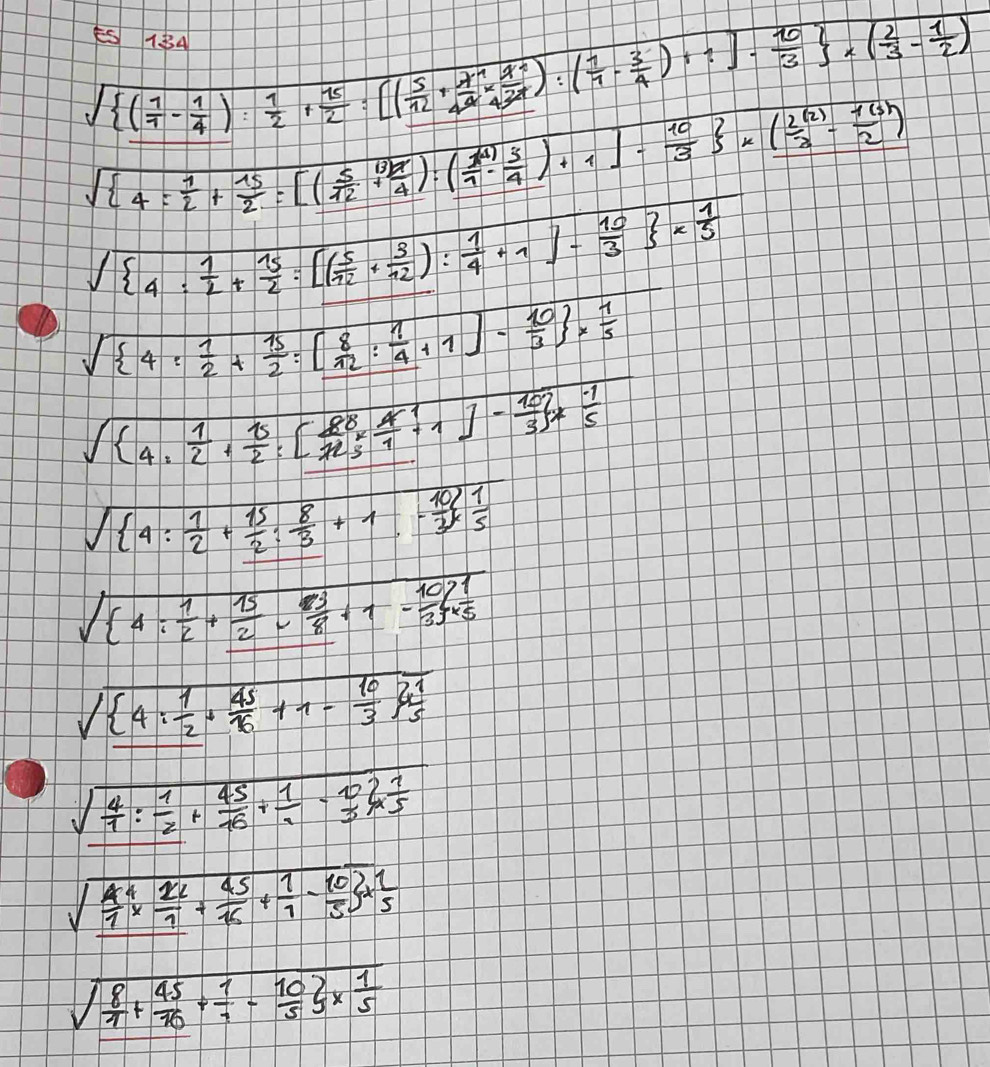 ES 134
√{(1/1 - 1/4) : 1/2 + 15/2 : [(5/12 + 1/4 × 1/3) : (1/1 - 3/4) + 1] - 10/3} × (2/3 - 1/2)
√{4 : 1/2 + 15/2 : [(5/12 + (3)1/4) : (1(4)/1 - 3/4) + 1] - 10/3} × (2(2)/3 - 1(3)/2)
√{4 : 1/2 + 15/2 : [(5/12 + 3/12) : 1/4 + 1] - 10/3} × 1/5
√{4 : 1/2 + 15/2 : [8/12 : 1/4 + 1] - 10/3} × 1/5
√{4 : 1/2 + 15/2 : [8/3 × 1/1 + 1] - 10/3} × 1/5
√{4 : 1/2 + 15/2 : 8/3 + 1 - 10/3} × 1/5
√{4 : 1/2 + 15/2 × 3/8 + 1 - 10/3} × 1/5
√{4 : 1/2 + 45/16 + 1 - 10/3} × 1/5
√4/1 : 1/2 + 45/16 + 1/1 - 10/3} × 1/5
√4/1 × 2/1 + 45/16 + 1/1 - 10/3} × 1/5
√8/1 + 45/16 + 1/1 - 10/3} × 1/5